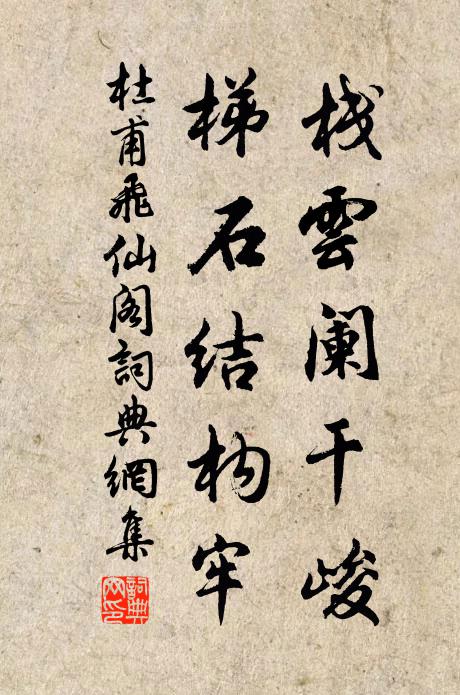 栈雲阑干峻
梯石结构牢
杜甫飛仙阁詞典網集
詞典網印